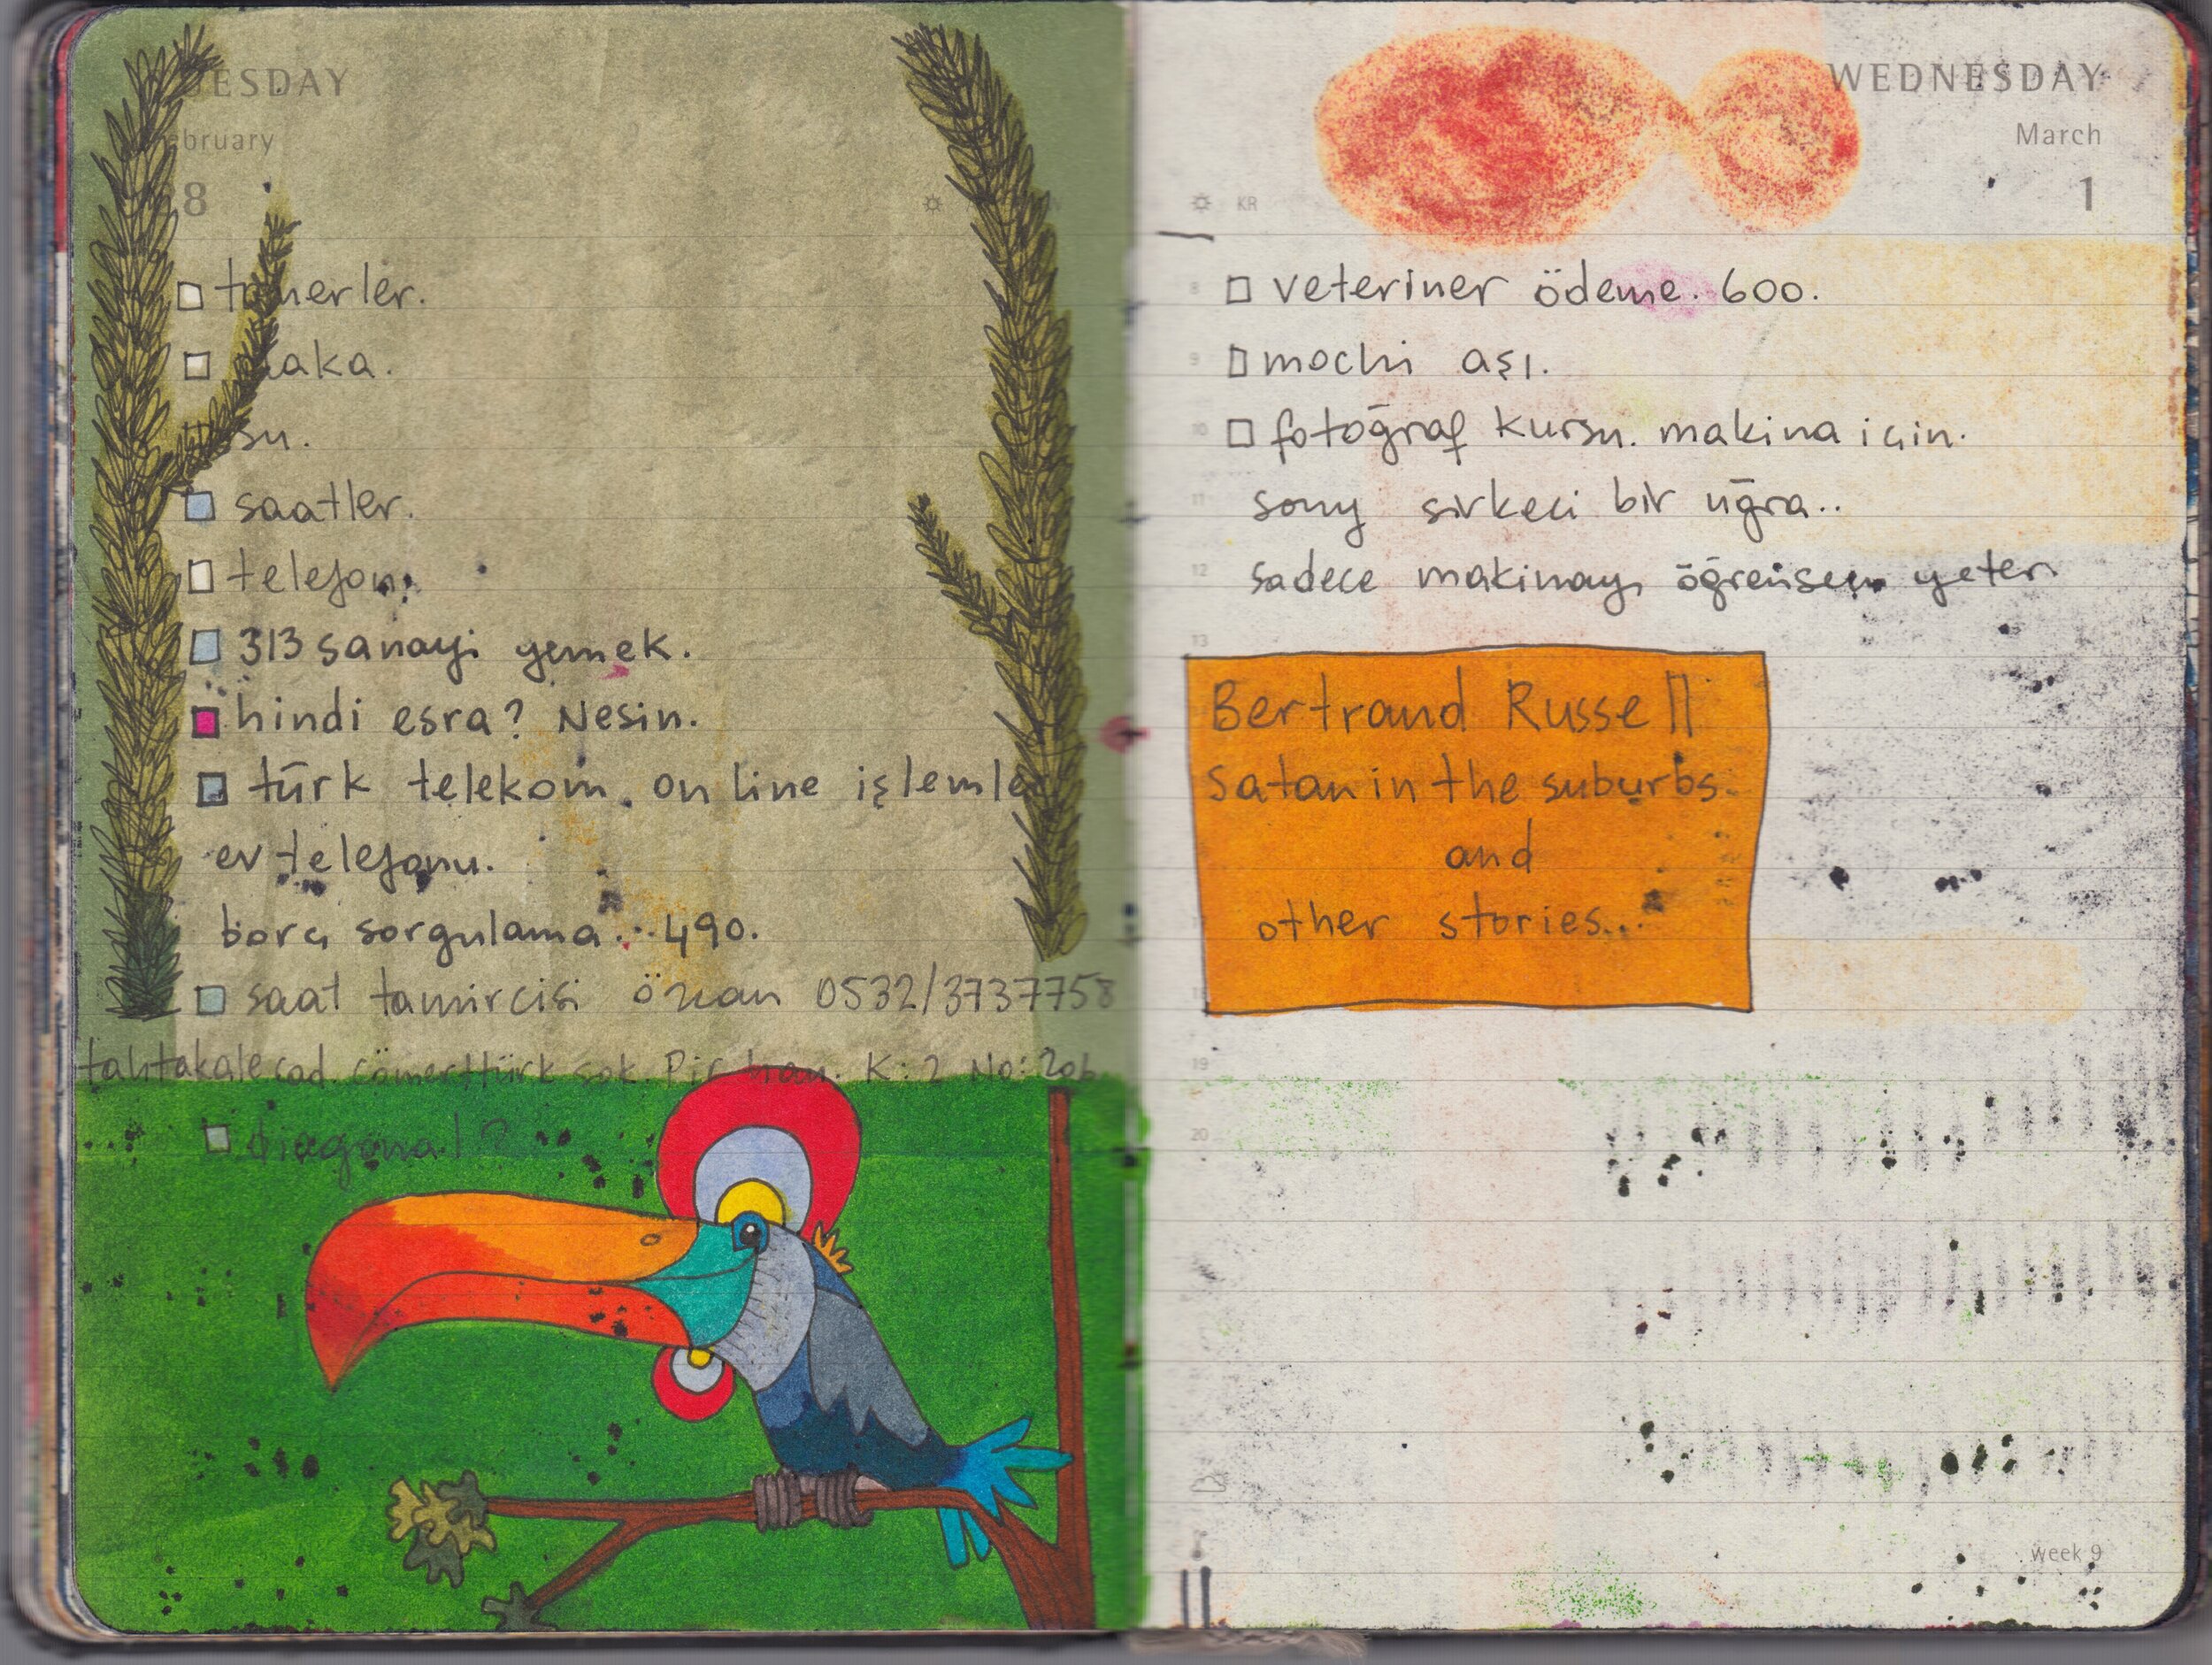 TUESDAY
February
28
tonerler.
plaka.
su.
saatler.
telefon.
313 sanayi yemek.
hindi esra? Nesin.
türk telekom. on line işlemler
ev telefonu.
borç sorgulama... 490.
saat tamircisi özcan 0532/3737758
tahtakale cad. cömerttürk sok. Pir han. K:2 No:206
diagonal?
WEDNESDAY
March
KR 1
8 veteriner ödeme. 600.
9 mochi aşı.
10 fotoğraf kursu. makina için.
11 sony sirkeci bir uğra..
12 sadece makinayı öğrensem yeter.
13
Bertrand Russell
Satan in the suburbs.
and
other stories...
19
20
week 9